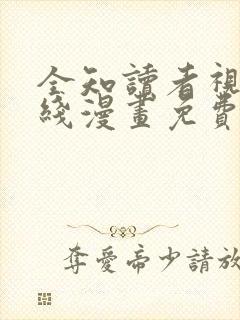 全知讀者視
綫漫畫免費
奪愛帝少請放